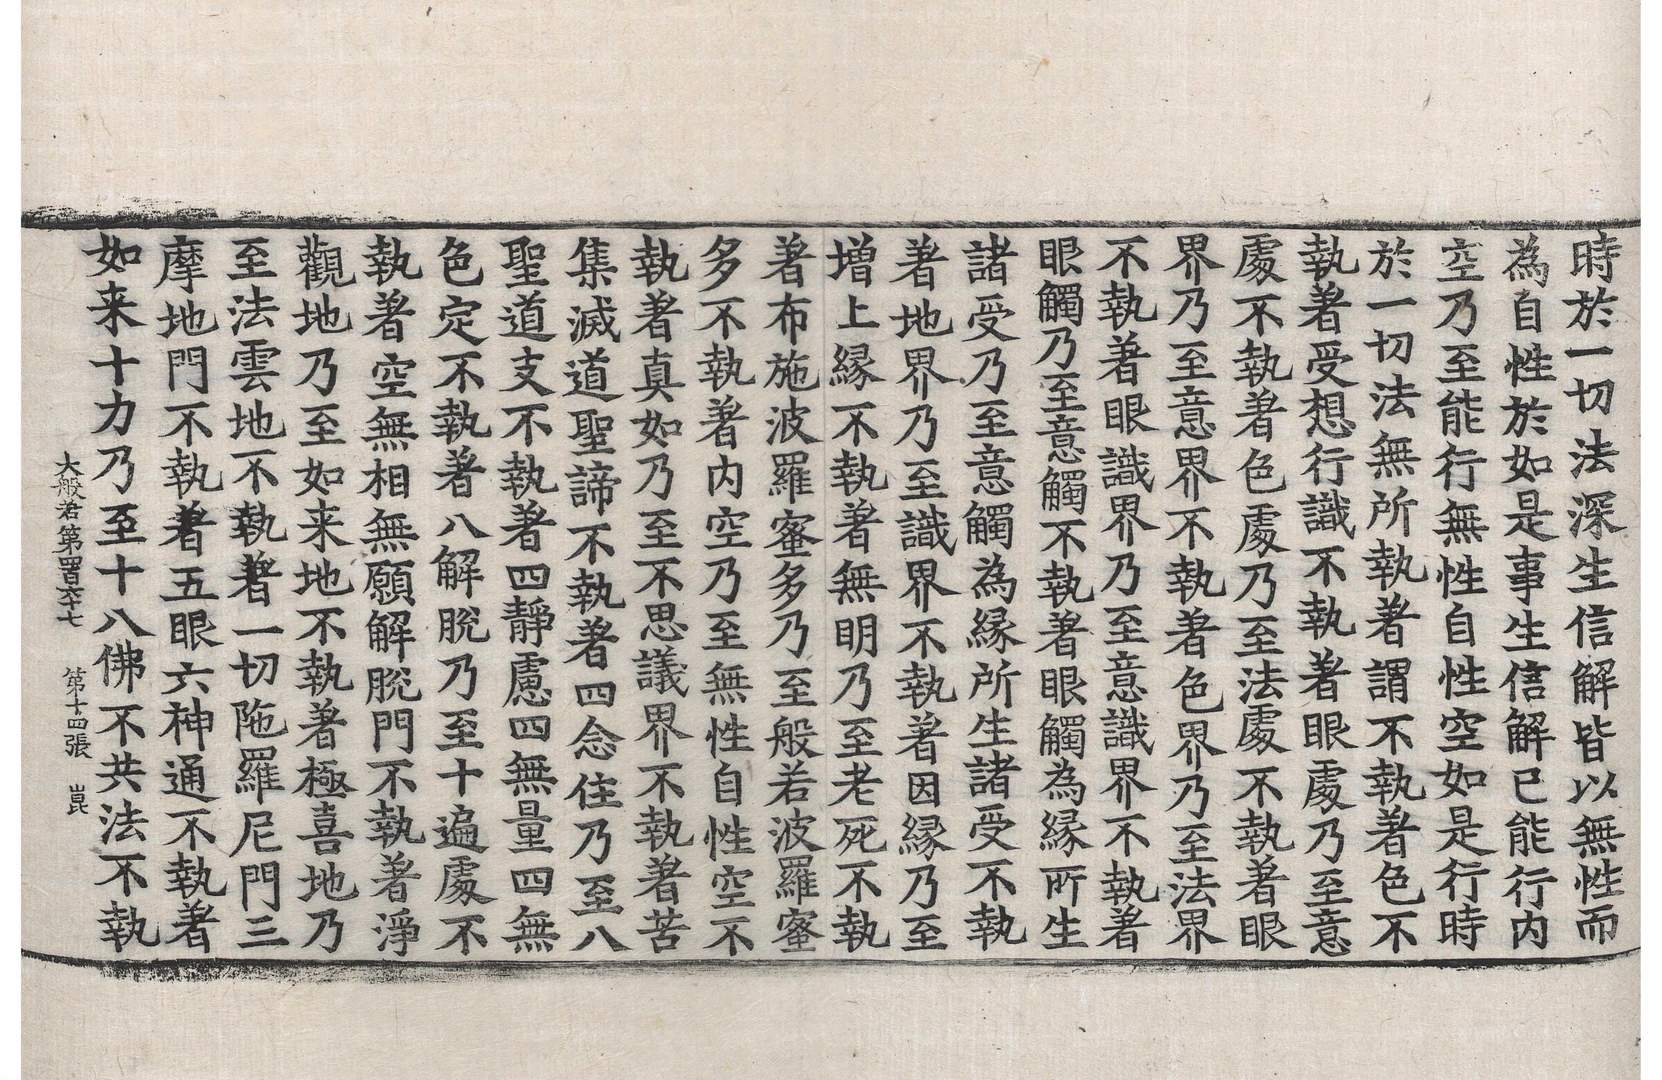 時於一切法深生信解皆以無性而
為自性於如是事生信解已能行内
空乃至能行無性自性空如是行時
於一切法無所執著謂不執著色不
執著受想行識不執著眼處乃至意
處不執著色處乃至法處不執著眼
界乃至意界不執著色界乃至法界
不執著眼識界乃至意識界不執著
眼觸乃至意觸不執著眼觸為縁所生
諸受乃至意觸為縁所生諸受不執
著地界乃至識界不執著因縁乃至
增上縁不執著無明乃至老死不執
著布施波羅蜜多乃至般若波羅蜜
多不執著内空乃至無性自性空不
執著真如乃至不思議界不執著苦
集滅道聖諦不執著四念住乃至八
聖道支不執著四靜慮四無量四無
色定不執著八解脫乃至十遍處不
執著空無相無願解脫門不執著淨
觀地乃至如来地不執著極喜地乃
至法雲地不執著一切陁羅尼門三
摩地門不執著五眼六神通不執著
如来十力乃至十八佛不共法不執
大般若第四百六十七 第十四張 崑